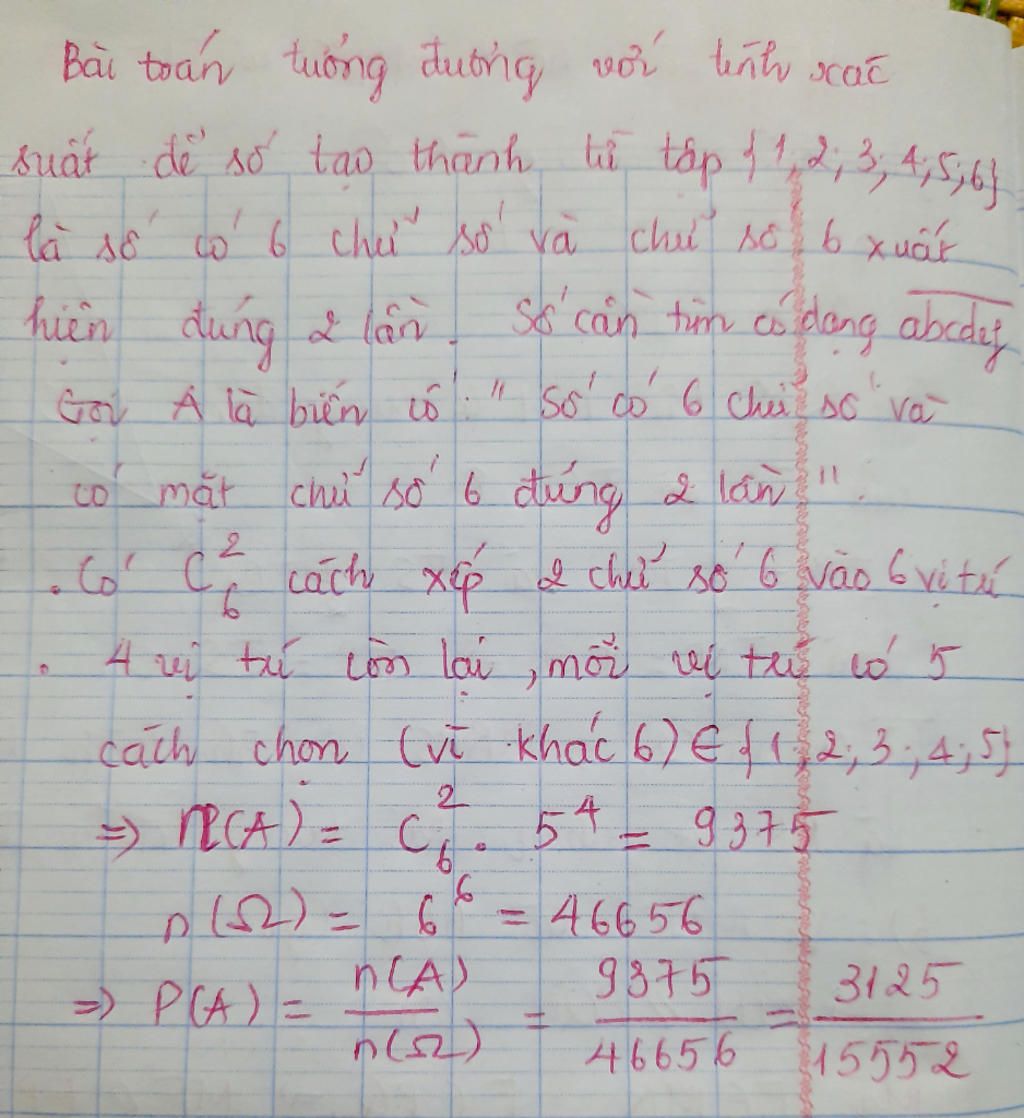 Bài toán tương đương với tính xác
suất để số tạo thành từ tập {1,2;3;4;5;6}
là số có 6 chữ số và chữ số 6 xuất
hiện đúng 2 lần. Số cần tìm có dạng abcdef
Gọi A là biến cố: "Số có 6 chữ số và
có mặt chữ số 6 đúng 2 lần".
. Có C₆² cách xếp 2 chữ số 6 vào 6 vị trí
. 4 vị trí còn lại, mỗi vị trí có 5
cách chọn (vì khác 6) ∈ {1;2;3;4;5}
=> n(A) = C₆² . 5⁴ = 9375
n(Ω) = 6⁶ = 46656
=> P(A) = n(A)/n(Ω) = 9375/46656 = 3125/15552